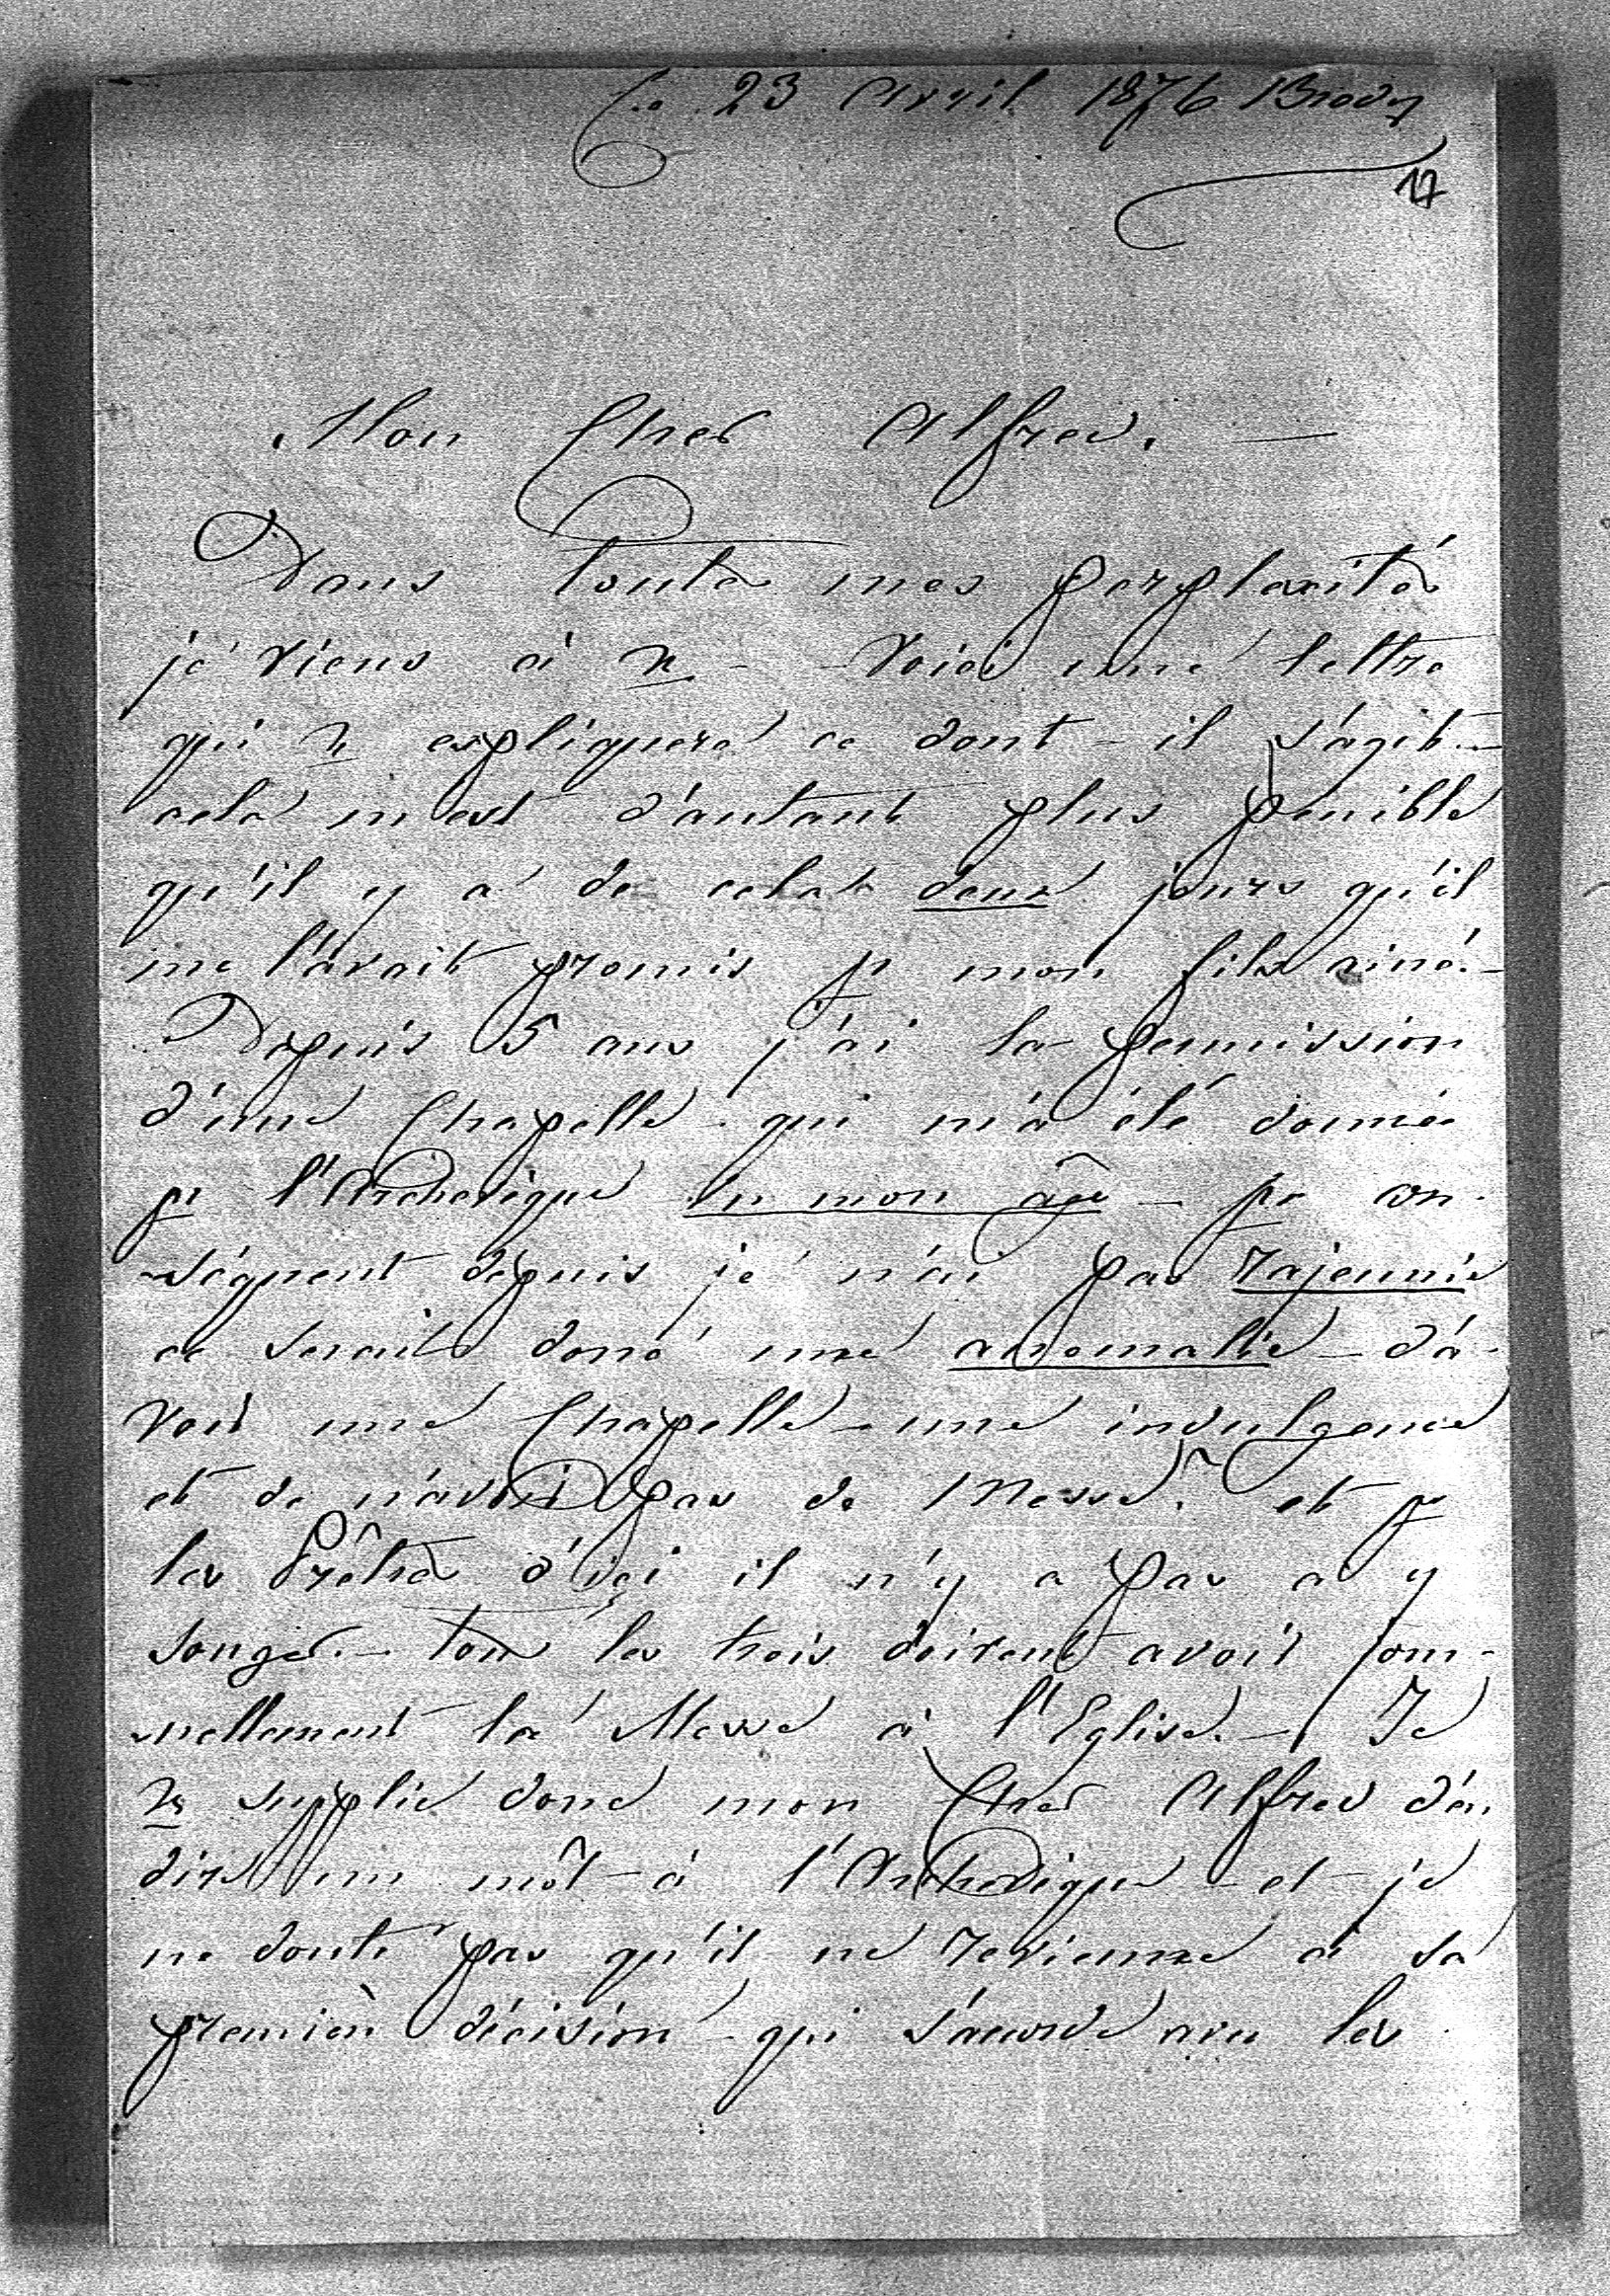 Ce 23 Avril 1876 Brody
17
Mon Cher Alfred. —
Dans toute mes perplexités
je viens à v. - Voici une lettre
qui v. expliquera ce dont - il s'agit. -
cela m'est d'autant plus penible
qu'il y a de cela deux jours qu'il
me l'avait promis p mon fils ainé. -
Depuis 5 ans j'ai la permission
d'une Chapelle qui m'a été donnée
pr l'Archevêque en mon âge - pr con-
-séquent depuis je n'ai pas rajeunie
ce serait donc une anomalie - d'a-
voir une Chapelle - une indulgence
et de n'avoir pas de Messe. et pr
les Prêtres d'ici il n'y a pas a y
songer. - tous les trois doivent avoir jour-
-nellement la Messe à l'Eglise. - Je
vs supplie donc mon Cher Alfred d'en
dire un môt - à l'Archevêque - et - je
ne doute pas qu'il ne revienne à sa
première décision - qui s'accorde avec les